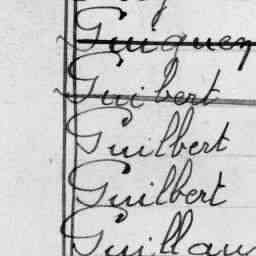 Guiguen
Guibert
Guilbert
Guilbert
Guillau